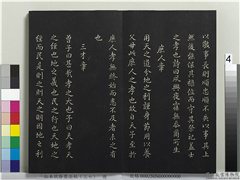 以敬事長則順忠順不失以事其上
然後能保其祿位而守其祭祀蓋士
之孝也詩曰夙興夜寐無忝爾所生
庶人章
用天之道分地之利謹身節用以養
父母此庶人之孝也故自天子至於
庶人孝無終始而患不及者未之有
也
三才章
曾子曰甚哉孝之大也子曰夫孝天
之經也地之義也民之行也天地之
經而民是則之則天之明因地之利
4